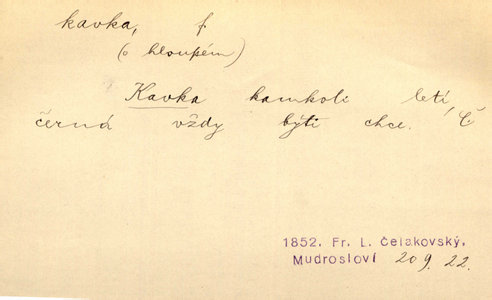 kavka, f.
(o hloupém)
Kavka kamkoli letí,
černá vždy býti chce. Č
1852. Fr. L. Čelakovský,
Mudrosloví 209. 22.